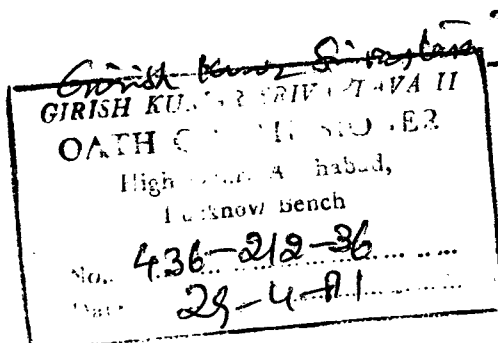 Girish Kumar Srivastava
GIRISH KU SRIV TAVA II
OATH C M SIO ER
High A habad,
Lucknow Bench
No. 436-212-36
Date 29-4-